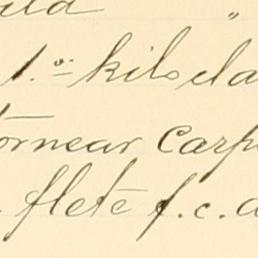 "
1.º kilo cla
tornear Carp
flete f.c. a